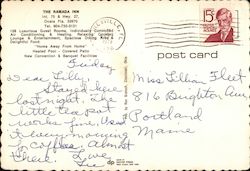 THE RAMADA INN
Int. 75 & Hwy. 27,
Ocala Fla. 32670
Tel. 904-732-3131
128 Luxurious Guest Rooms, Individually Controlled
Air Conditioning & Heating, Relaxing Cocktail
Lounge & Entertainment, Spacious Dining Area &
Delightful Food.
"Home Away From Home"
Heated Pool - Covered Patio
New Convention & Banquet Facilities
15c
post card
Friday
Dear Lilly,
Stayed here
last night. The
little tea pot
works fine. Used
it every morning
to coffee, almost
there. Love
Miss Lillian Fleet
816 Brighton Ave
Portland
Maine